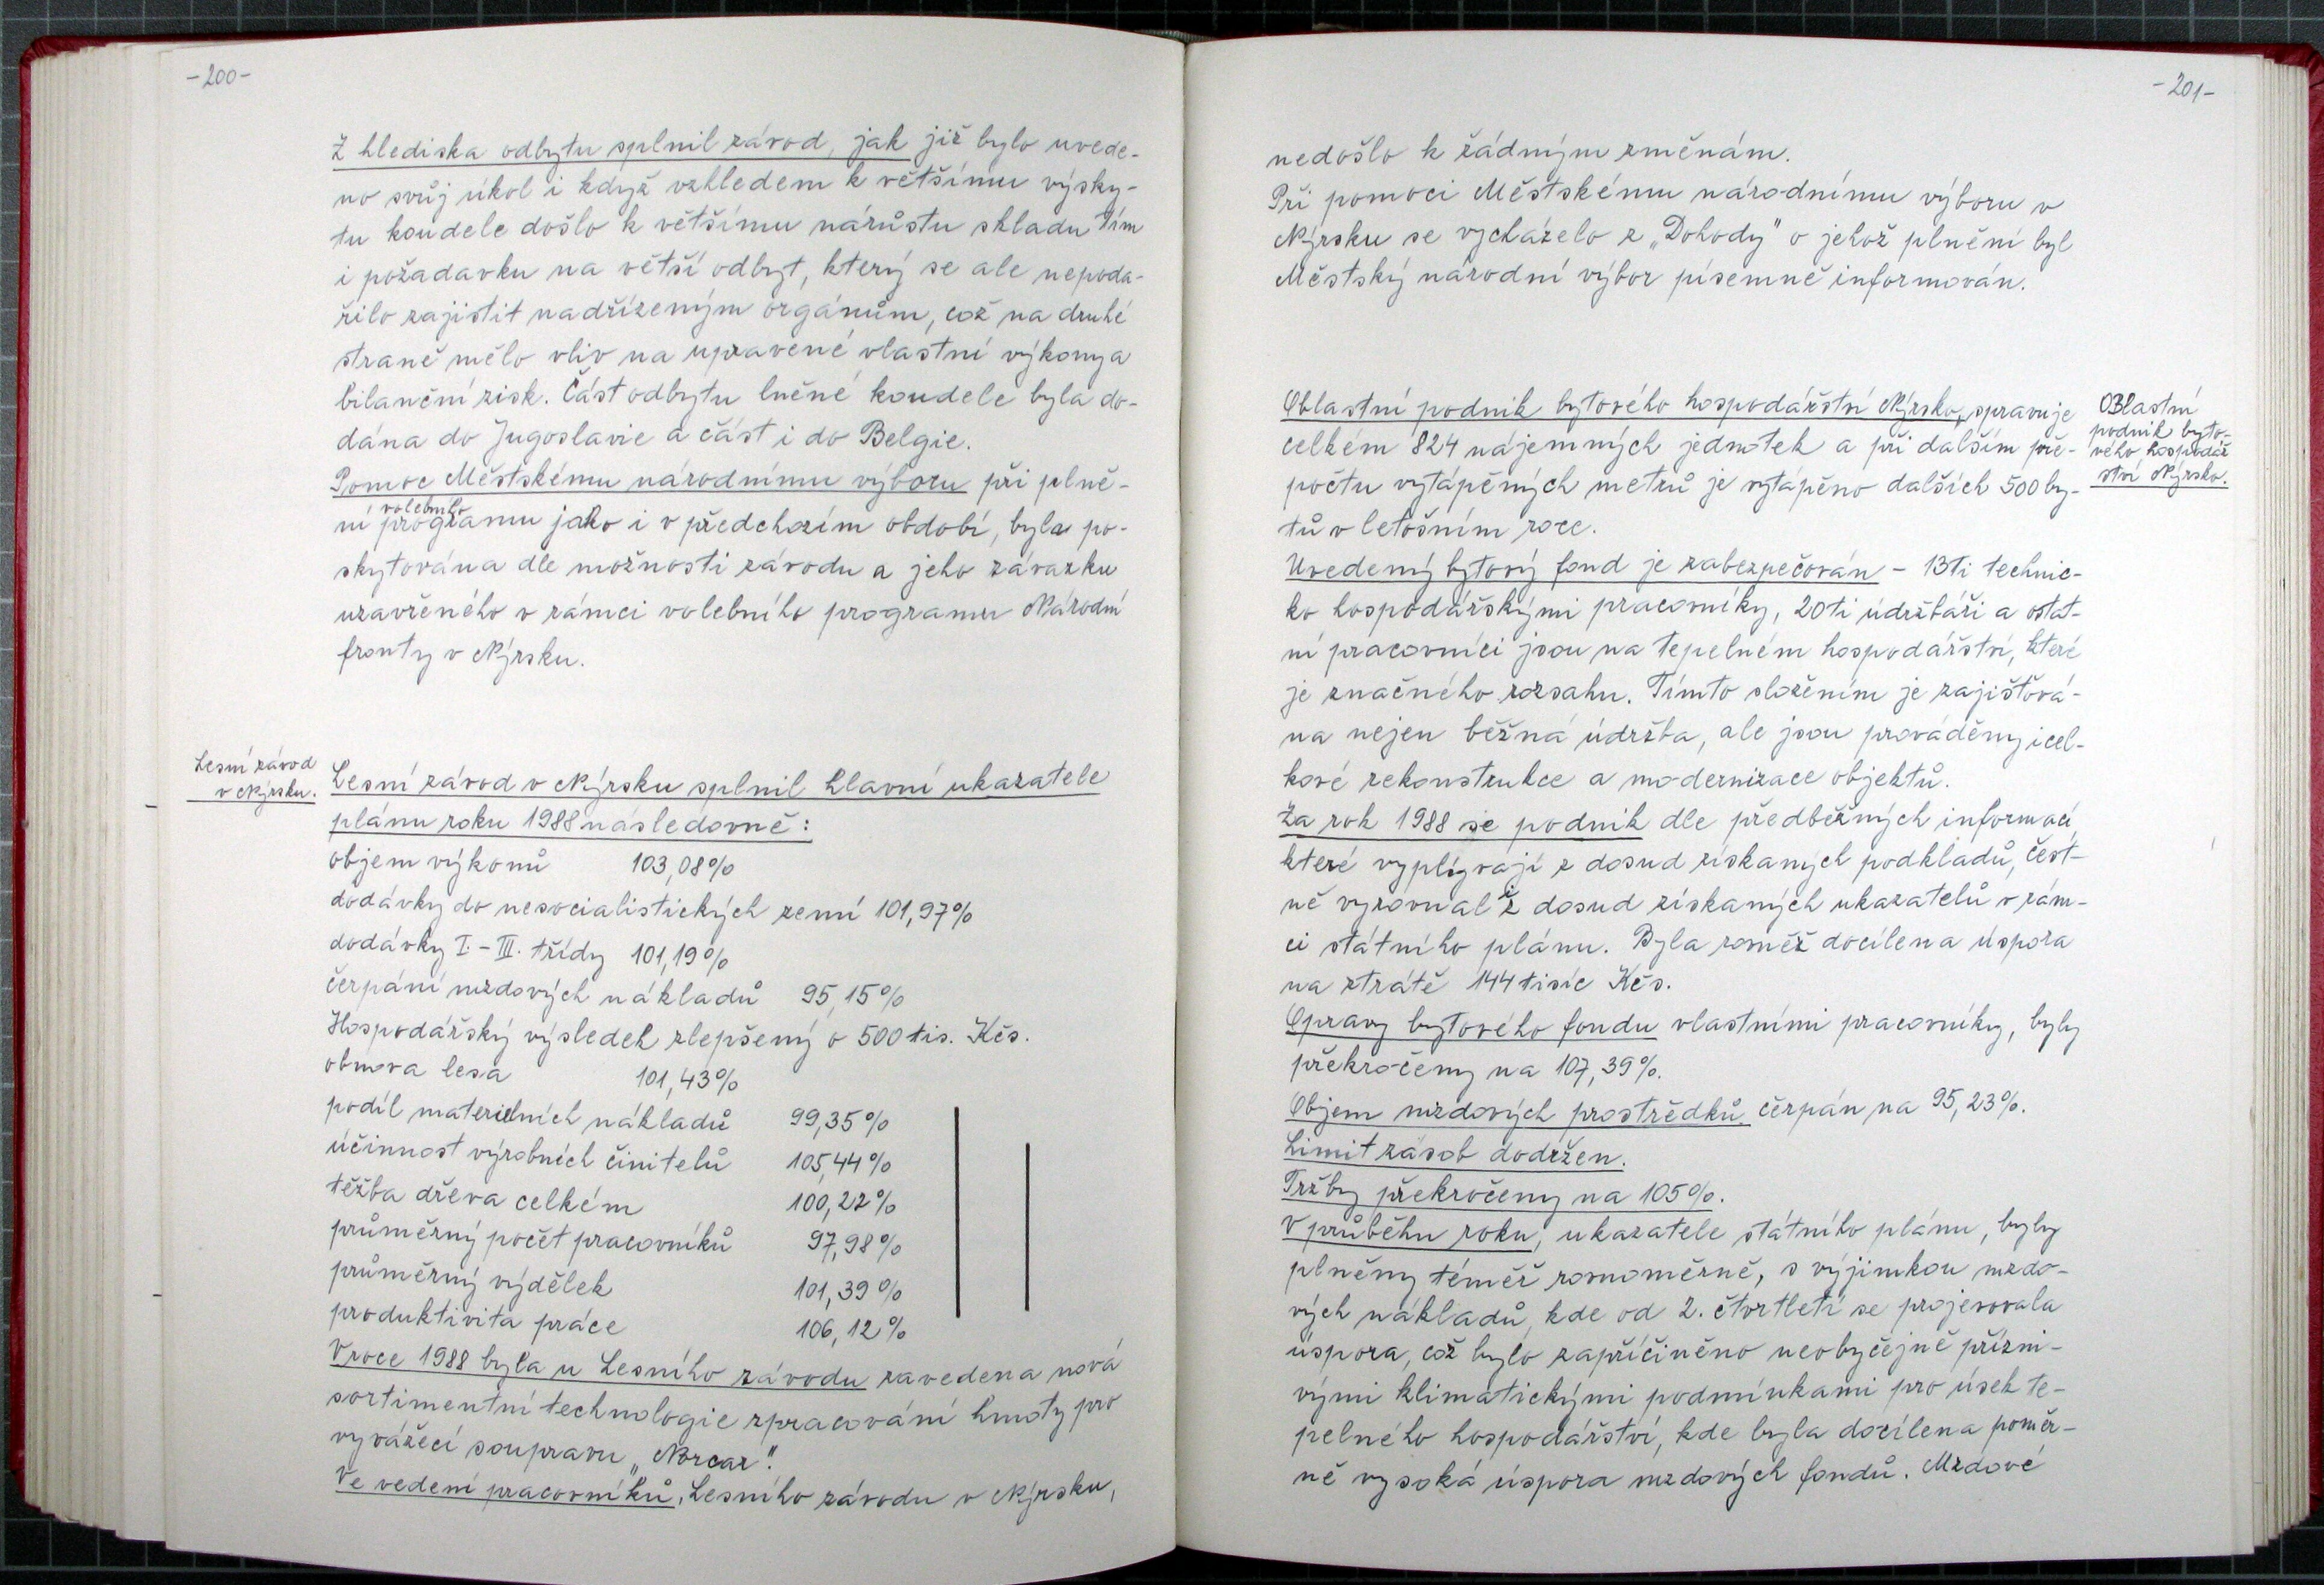 -200-
Z hlediska odbytu splnil závod, jak již bylo uvede-
no svůj úkol i když vzhledem k většímu výsky-
tu koudele došlo k většímu nárůstu skladu tím
i požadavku na větší odbyt, který se ale nepoda-
řilo zajistit nadřízeným orgánům, což na druhé
straně mělo vliv na upravené vlastní výkony a
bilanční zisk. Část odbytu lněné koudele byla do-
dána do Jugoslavie a část i do Belgie.
Pomoc Městskému národnímu výboru při plně-
ní volebního programu jako i v předchozím období, byla po-
skytována dle možnosti závodu a jeho závazku
uzavřeného v rámci volebního programu Národní
fronty v Nýrsku.
Lesní závod
v Nýrsku.
Lesní závod v Nýrsku splnil hlavní ukazatele
plánu roku 1988 následovně:
objem výkonů 103,08%
dodávky do nesocialistických zemí 101,97%
dodávky I.-III. třídy 101,19%
čerpání mzdových nákladů 95,15%
Hospodářský výsledek zlepšený o 500 tis. Kčs.
obnova lesa 101,43%
podíl materielních nákladů 99,35%
účinnost výrobních činitelů 105,44%
těžba dřeva celkém 100,22%
průměrný počet pracovníků 97,98%
průměrný výdělek 101,39%
produktivita práce 106,12%
V roce 1988 byla u Lesního závodu zavedena nová
sortimentní technologie zpracování hmoty pro
vyvážecí soupravu „Norcar".
Ve vedení pracovníků, Lesního závodu v Nýrsku,
-201-
nedošlo k žádným změnám.
Při pomoci Městskému národnímu výboru v
Nýrsku se vycházelo z „Dohody" o jehož plnění byl
Městský národní výbor písemně informován.
Oblastní podnik bytového hospodářství Nýrsko, spravuje
celkém 824 nájemných jednotek a při dalším pře-
počtu vytápěných metrů je vytápěno dalších 500 by-
tů v letošním roce.
OBlastní
podnik byto-
vého hospodář
ství Nýrsko.
Uvedený bytový fond je zabezpečován - 13ti technic-
ko hospodářskými pracovníky, 20ti údržbáři a ostat-
ní pracovníci jsou na tepelném hospodářství, které
je značného rozsahu. Tímto složením je zajišťová-
na nejen běžná údržba, ale jsou prováděny i cel-
kové rekonstrukce a modernizace objektů.
Za rok 1988 se podnik dle předběžných informací,
které vyplývají z dosud získaných podkladů, čest-
ně vyrovnal i z dosud získaných ukazatelů v rám-
ci státního plánu. Byla rověž docílena úspora
na ztrátě 144 tisíc Kčs.
Opravy bytového fondu vlastními pracovníky, byly
překročeny na 107,39%.
Objem mzdových prostředků čerpán na 95,23%.
Limit zásob dodržen.
Tržby překročeny na 105%.
V průběhu roku, ukazatele státního plánu, byly
plněny téměř rovnoměrně, s výjimkou mzdo-
vých nákladů, kde od 2. čtvrtletí se projevovala
úspora, což bylo zapříčiněno neobyčejně přízni-
vými klimatickými podmínkami pro úsek te-
pelného hospodářství, kde byla docílena poměr-
ně vysoká úspora mzdových fondů. Mzdové